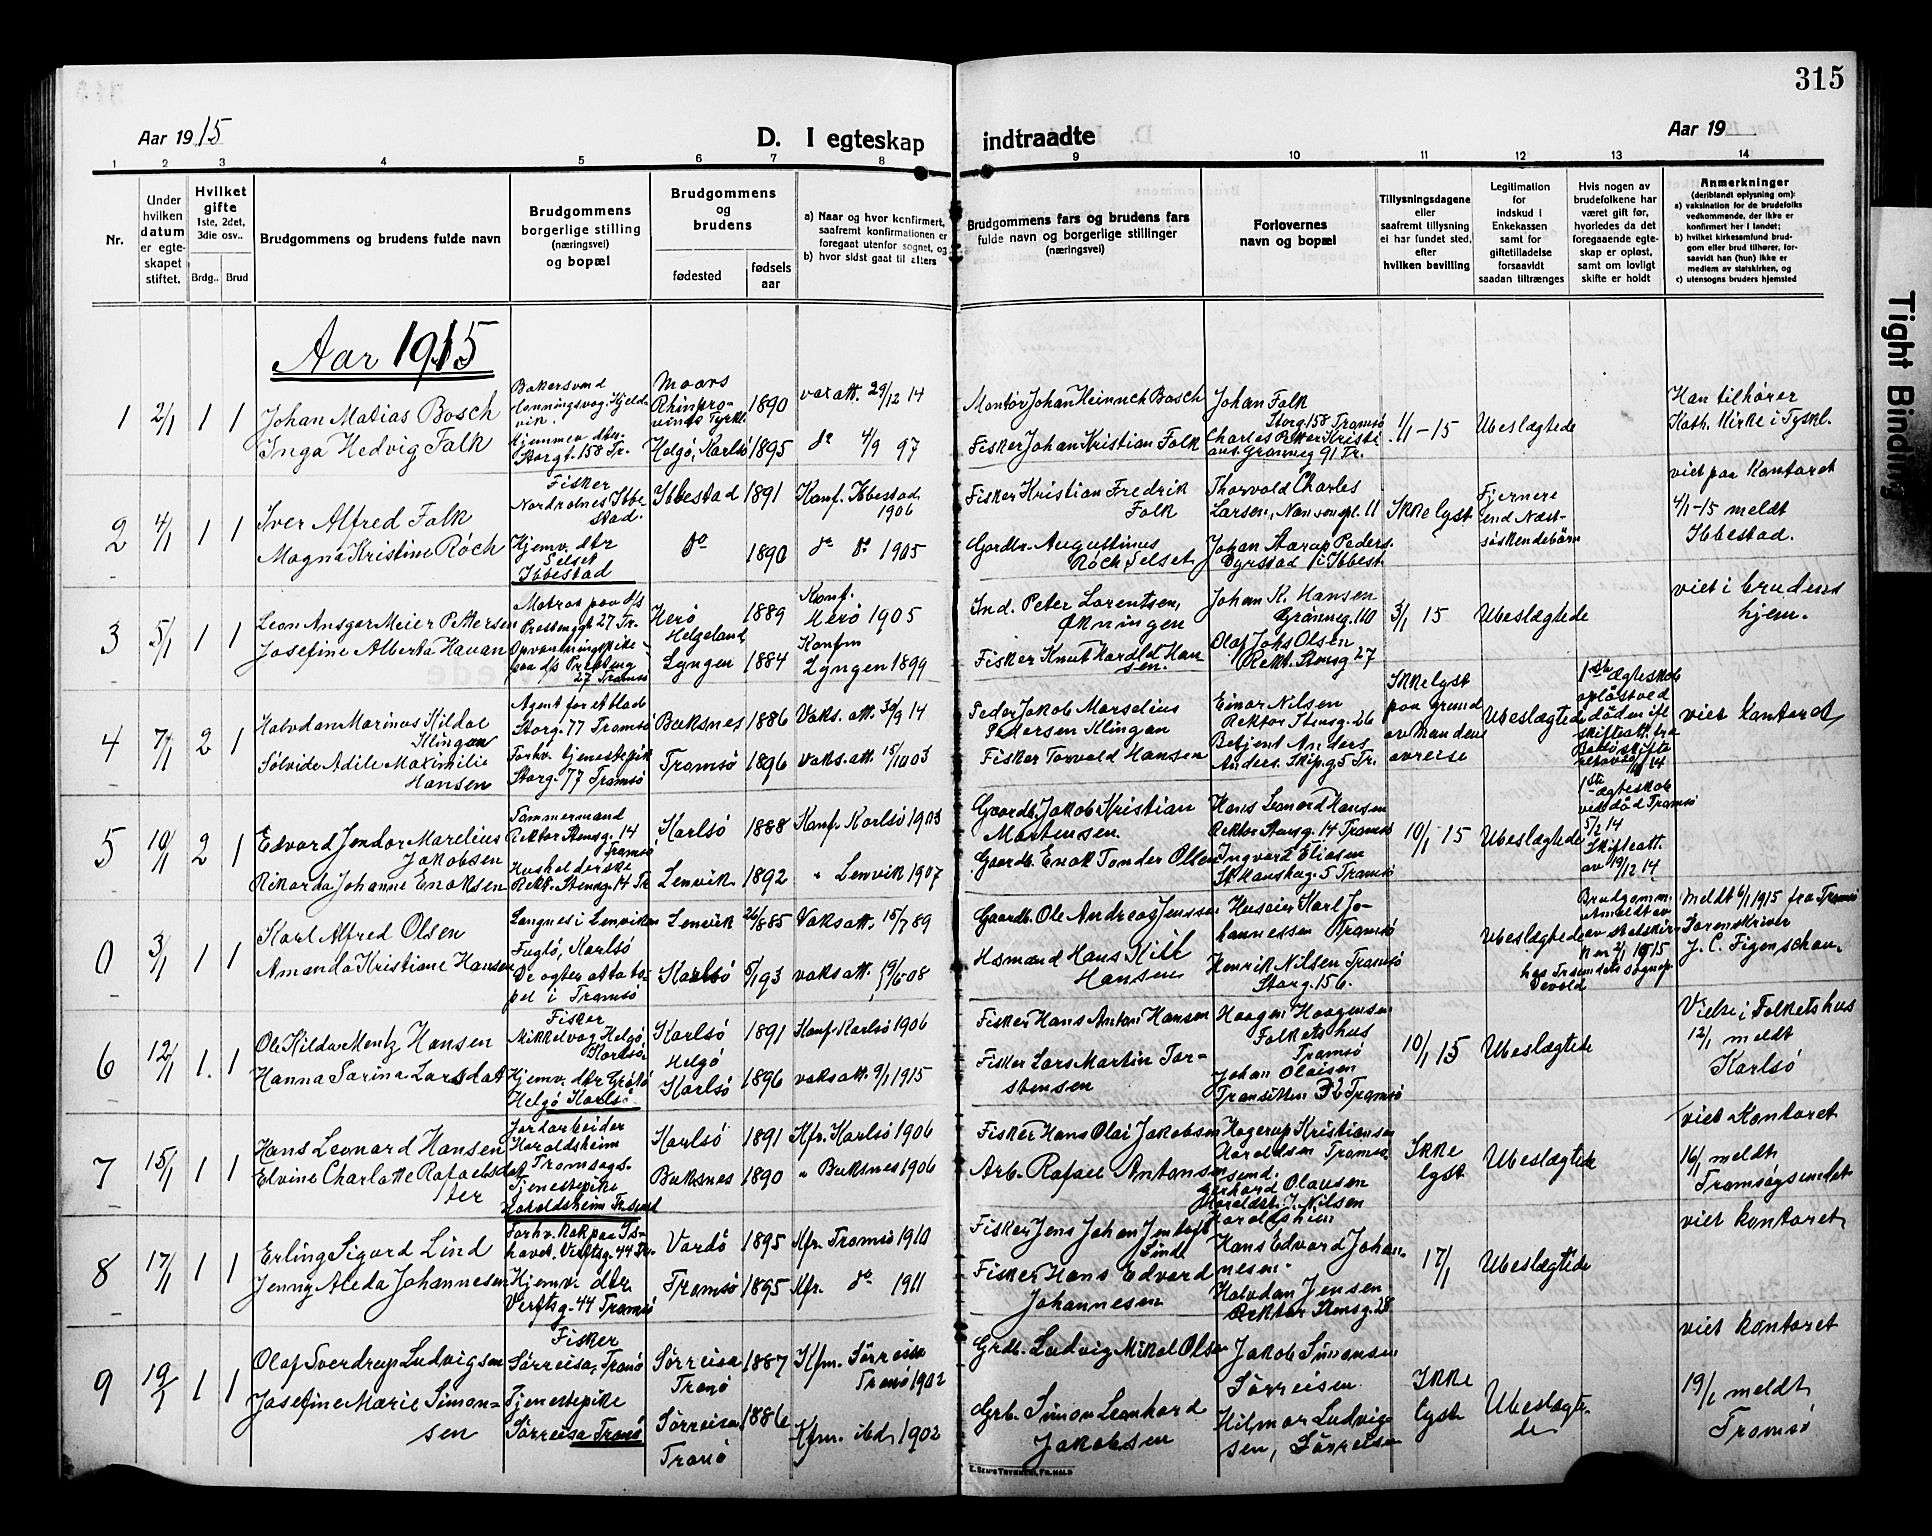 315
Aar 1915
D. I egteskap indtraadte
Aar 19
1 2 3 4 5 6 7 8 9 10 11 12 13 14
Nr.
Under hvilken datum er egteskapet stiftet.
Hvilket gifte 1ste, 2det, 3die osv..
Brdg.. Brud
Brudgommens og brudens fulde navn
Brudgommens borgerlige stilling (næringsvei) og bopæl
Brudgommens og brudens
fødested
fødselsaar
a) Naar og hvor konfirmert, saafremt konfirmationen er foregaat utenfor sognet, og
b) hvor sidst gaat til alters
Brudgommens fars og brudens fars fulde navn og borgerlige stillinger (næringsvei)
Forlovernes navn og bopæl
Tillysningsdagene eller saafremt tillysning ei har fundet sted, efter hvilken bevilling
Legitimation for indskud i Enkekassen samt for giftetilladelse forsaavidt saadan tiltrænges
Hvis nogen av brudefolkene har været gift før, hvorledes da det foregaaende egteskap er opløst, samt om lovligt skifte er holdt
Anmerkninger
(deriblandt oplysning om):
a) vaksination for de brudefolks vedkommende, der ikke er konfirmert her i landet;
b) hvilket kirkesamfund brudgom eller brud tilhører, forsaavidt han (hun) ikke er medlem av statskirken, og
c) utensogns bruders hjemsted
Aar 1915
1 2/1 1 1
Johan Matias Bosch
Inga Hedvig Falk
Hjemmev. dtr.
Storgt. 158 Tr.
Helgö, Karlsö
1890
1895
vax att. 29/12 14
do 4/9 97
Montör Johan Heinrich Bosch
Fisker Johan Kristian Falk
Johan Falk
Storg. 158 Tromsö
Charles Petter Kristi
ans. Grønneg 91 Tr.
1/1-15
Ubeslægtede
Han tilhører
Kath. Kirke i Tyskl.
2 4/1 1 1
Iver Alfred Falk
Magna Kristine Röch
Fisker
Hjemv. dtr
Selset
Ibbestad
Ibbestad
do
1891
1890
Konf. Ibbestad
1906
do do 1905
Fisker Kristian Fredrik
Falk
Gardbr. Augustinus
Röch, Selset
Thorvald Charles
Larsen, Nansenspl. 11
Johan Aarup Peders.
Dyrstad i Ibbest
Ikke lyst
Fjernere
end Næst-
söskendebörn
viet paa Kontoret
4/1-15 meldt
Ibbestad.
3 5/1 1 1
Leon Ansgar Meier Pettersen
Josefine Alberta Hansen
Matros paa d/s
27 Tromsö
Herö
Helgeland
Lyngen
1889
1884
Konf.
Herö 1905
Konfm
Lyngen 1899
Ind. Peter Lorentsen,
Økningen
Fisker Knut Harald Han
sen
Johan K. Hansen
Grønneg. 110
Olaf Johs Olsen
Rekt. Stensg 27
3/1 15
Ubeslægtede
viet i brudens
hjem.
4 7/1 2 1
Halvdan Marinus Kildal
Klingan
Sølvide Adile Maximilie
Hansen
Agent for et blad
Storg. 77 Tromsö
Forhv. tjenestepike
Storg. 77 Tromsö
Buksnes
Tromsö
1886
1896
Vaks. att. 30/9 14
vaks. att. 15/10 03
Peder Jakob Marselius
Pedersen Klingan
Fisker Torvald Hansen
Einar Nilsen
Rektor Stensg. 26
Betjent Anders
Anders. Skip.g 5 Tr.
Ikke lyst
paa grund
av mandens
avreise
Ubeslægtede
1ste ægteskab
opløst ved
døden
viet kontoret
5 10/1 2 1
Edvard Jendor Marelius
Jakobsen
Rikarda Johanne Enoksen
Tømmermand
Rektor Stensg. 14
Tromsö
Husholderske
Rekt. Stensg. 14 Tr
Karlsö
Lenvik
1888
1892
Konf. Karlsö 1903
" Lenvik 1907
Gaardb. Jakob Kristian
Martensen
Gaardb. Enok Tonder Olsen
Hans Leonard Hansen
Rektor Stensg. 14 Tromsö
Ingvard Eliasen
Skanseg. 5 Tromsö
10/1 15
Ubeslægtede
1ste ægteskab
ved död Tromsö
5/2 14
Skifteatt.
av 19/12 14
0 3/1 1 1
Karl Alfred Olsen
Amanda Kristiane Hansen
Langnes i Lenviken
Fuglö, Karlsö
Lenvik
Karlsö
26/1 885
5/1 93
Vaks att. 15/7 89
vaks att.
Gaardb. Ole Andreas Jenssen
Hans Kiil
Hansen
Huseier Karl Jo-
hannessen Tromsö
Henrik Nilsen Tromsö
Storg. 156.
Ubeslægtede
Brudgomm.
utmeldt av
av statskir
ken 2/1 1915
Meldt 6/1 1915 fra Tromsö
Sorenskriver
J. C. Figenschau.
6 12/1 1. 1
Ole Kildar Mentz Hansen
Hanna Sarina Larsdat
Fisker
Mikkelvag Helgö
Karlsö
Hjemv. dtr Grötö
Helgö Karlsö
Karlsö
Helgö
Karlsö
1891
1896
Konf. Karlsö 1906
vaks att. 9/1 1915
Fisker Hans Antoni Hansen
Fisker Lars Martin Tor-
stensen
Haagen Haagensen
Folkets hus
Tromsö
Johan Olaisen
32 Tromsö
10/1 15
Ubeslægtede
Vielse i Folkets hus
12/1 meldt
Karlsö
7 15/1 1 1
Hans Leonard Hansen
Elvine Charlotte Rafaelsdat
ter
Jordarbeider
Haraldsheim
Tromsøgs.
Tjenestepike
Haraldsheim Tr.send
Karlsö
Buksnes
1891
1890
Kfr. Karlsö 1906
" Buksnes 1906
Fisker Hans Olai Jakobsen
Arb. Rafael Antonsen
Hagerup Kristiansen
Haraldsen Tromsø
send.
Gerhard Olausen
Ikke
lyst
Ubeslægtede
viet kontoret
16/1 meldt
Tromsøgsundet
8 17/1 1 1
Erling Sigvard Lind
Jenny Aleda Johannesen
Forhv. Kok paa Is-
havet. Verftsg. 44 Tr.
Hjemv. dtr
Verftsg. 44 Tromsö
Vardö
Tromsö
1895
1895
Kfr. Tromsö 1910
Kfr. do 1911
Fisker Jens Johan Jentoft
Lind
Fisker Hans Edvard
Johannesen
Hans Edvard Johan-
nesen
Halvdan Jensen
Rektor Stensg. 28
17/1
Ubeslægtede
viet kontoret
9 19/1 1 1
Olaf Sverdrup Ludvigsen
Josefine Marie Simon-
sen
Fisker
Sörreisa, Tranö
Tjenestepike
Sörreisa Tranö
Sörreisa
Tranö
Sörreisa
Tranö
1887
1886
Kfm. Sörreisa
Tranö 1902
Kfm. ibd. 1902
Grdb. Ludvig Mikal Olsen
Grb. Simon Leonhard
Jakobsen
Jakob Simonsen
Sörreisen
Hilmar Ludvig-
sen, Sörreisa
Ikke
lyst
Ubeslægte-
de
viet kontoret
19/1 meldt
Tromsö
E. Sem's Trykkeri, Fr.hald
Tight Binding